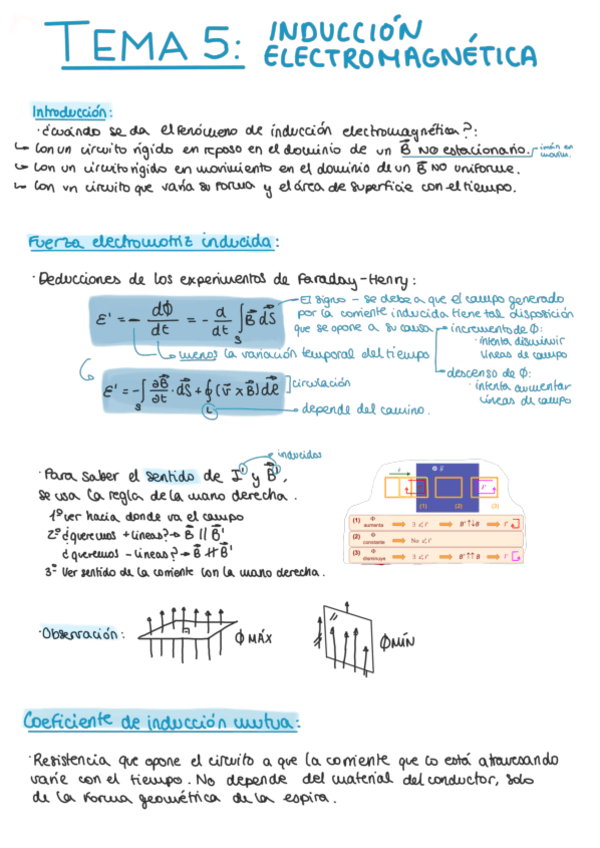 TEMA 5: INDUCCIÓN
ELECTROMAGNÉTICA
Introducción:
· ¿Cuándo se da el fenómeno de inducción electromagnética?:
↳ Con un circuito rígido en reposo en el dominio de un B⃗ NO estacionario. → imán en movim.
↳ Con un circuito rígido en movimiento en el dominio de un B⃗ NO uniforme.
↳ Con un circuito que varía su forma y el área de superficie con el tiempo.
Fuerza electromotriz inducida:
· Deducciones de los experimentos de Faraday-Henry:
ε' = - dΦ/dt = - d/dt ∫s B⃗ dS⃗
El signo - se debe a que el campo generado
por la corriente inducida tiene tal disposición
que se opone a su causa
incremento de Φ:
· intenta disminuir
líneas de campo
descenso de Φ:
· intenta aumentar
líneas de campo
menos la variación temporal del tiempo
ε' = -∫s ∂B⃗/∂t · dS⃗ + ∮L (v⃗ x B⃗) dℓ⃗
circulación
depende del camino.
inducidos
· Para saber el sentido de I' y B⃗',
se usa la regla de la mano derecha.
1º ver hacia donde va el campo
2º ¿queremos + líneas? → B⃗ || B⃗'
¿queremos - líneas? → B⃗ ⇈ B⃗'
3º Ver sentido de la corriente con la mano derecha.
(1) (2) (3)
(1) Φ aumenta ⇒ ∃ ε' ⇒ B'↑↓B ⇒ I'
(2) Φ constante ⇒ No ∃ ε'
(3) Φ disminuye ⇒ ∃ ε' ⇒ B'↑↑B ⇒ I'
· Observación:
Φ MÁX
Φ MÍN
Coeficiente de inducción mutua:
· Resistencia que opone el circuito a que la corriente que lo está atravesando
varíe con el tiempo. No depende del material del conductor, solo
de la forma geométrica de la espira.